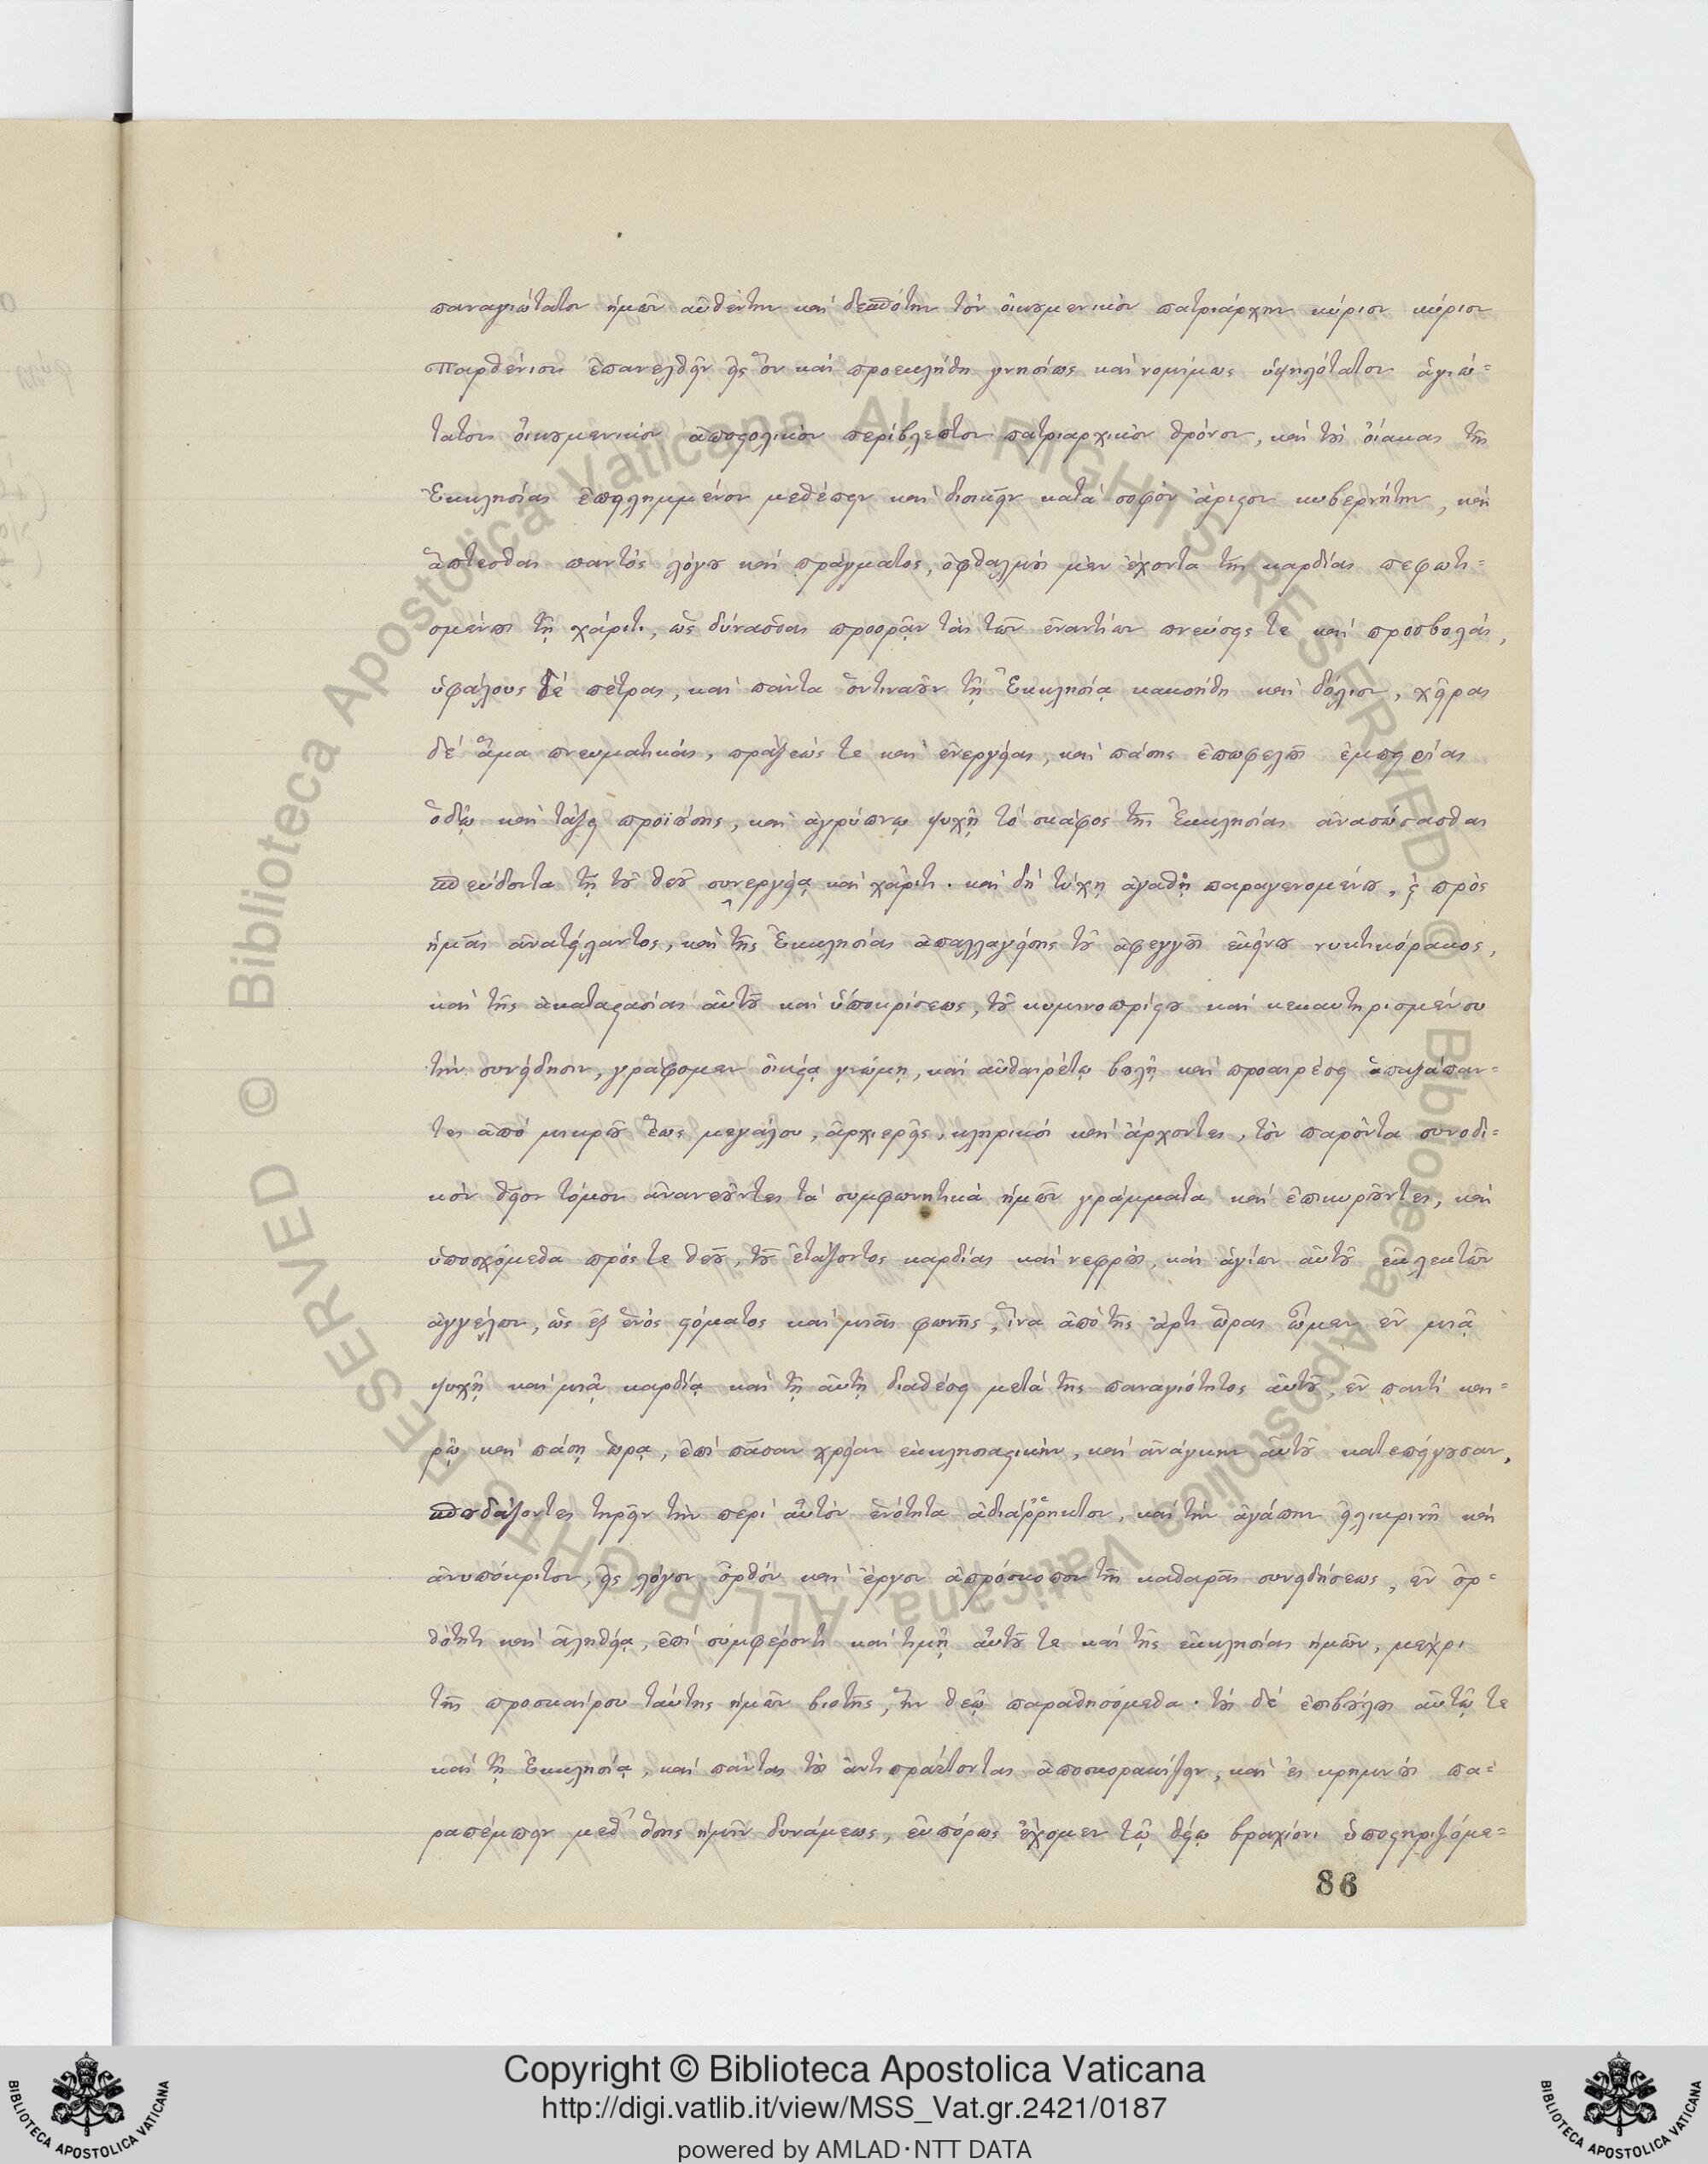 παναγιώτατον ἡμῶν αὐθέντην καὶ δεσπότην τὸν οἰκουμενικὸν πατριάρχην κύριον κύριον
Παρθένιον ἐπανελθεῖν εἰς ὃν καὶ προεκλήθη γνησίως καὶ νομίμως ὑψηλότατον ἁγιώ-
τατον οἰκουμενικὸν ἀποστολικὸν περίβλεπτον πατριαρχικὸν θρόνον, καὶ τοὺς οἴακας τῆς
Ἐκκλησίας ἐπειλημμένον μεθέπειν καὶ διοικεῖν κατὰ σοφὸν ἄριστον κυβερνήτην, καὶ
ἅπτεσθαι παντὸς λόγου καὶ πράγματος, ὀφθαλμοὺς μὲν ἔχοντα τῆς καρδίας πεφωτι-
σμένους τῇ χάριτι, ὡς δύνασθαι προορᾷν τὰς τῶν ἐναντίων πνεύσεις τε καὶ προσβολάς,
ὑφάλους δὲ πέτρας, καὶ πάντα ὁντιναοῦν τῇ Ἐκκλησίᾳ κακοήθη καὶ δόλιον, χεῖρας
δὲ ἅμα πνευματικάς, πράξεώς τε καὶ ἐνεργείας, καὶ πάσης ἐπωφελοῦς ἐμπειρίας
ὁδῷ καὶ τάξει προϊούσης, καὶ ἀγρύπνῳ ψυχῇ τὸ σκάφος τῆς Ἐκκλησίας ἀνασώσασθαι
σπεύδοντα τῇ τοῦ θεοῦ συνεργείᾳ καὶ χάριτι. καὶ δὴ τύχῃ ἀγαθῇ παραγενομένου, καὶ πρὸς
ἡμᾶς ἀνατείλαντος, καὶ τῆς Ἐκκλησίας ἀπαλλαγείσης τοῦ ἀφεγγοῦς ἐκείνου νυκτικόρακος,
καὶ τῆς ἀκαταστασίας αὐτοῦ καὶ ὑποκρίσεως, τοῦ κυμινοπρίστου καὶ κεκαυτηρισμένου
τὴν συνείδησιν, γράφομεν οἰκείᾳ γνώμῃ, καὶ αὐθαιρέτῳ βουλῇ καὶ προαιρέσει ἁπαξάπαν-
τες ἀπὸ μικροῦ ἕως μεγάλου, ἀρχιερεῖς, κληρικοὶ καὶ ἄρχοντες, τὸν παρόντα συνοδι-
κὸν θεῖον τόμον ἀνανεοῦντες τὰ συμφωνητικὰ ἡμῶν γράμματα καὶ ἐπικυροῦντες, καὶ
ὑποσχόμεθα πρός τε θεοῦ, τοῦ ἐτάζοντος καρδίας καὶ νεφρούς, καὶ ἁγίων αὐτοῦ ἐκλεκτῶν
ἀγγέλων, ὡς ἐξ ἑνὸς στόματος καὶ μιᾶς φωνῆς, ἵνα ἀπὸ τῆς ἄρτι ὥρας ὦμεν ἐν μιᾷ
ψυχῇ καὶ μιᾷ καρδίᾳ καὶ τῇ αὐτῇ διαθέσει μετὰ τῆς παναγιότητος αὐτοῦ, ἐν παντὶ και-
ρῷ καὶ πάσῃ ὥρᾳ, ἐπὶ πᾶσαν χρείαν ἐκκλησιαστικήν, καὶ ἀνάγκην αὐτοῦ κατεπείγουσαν,
σπουδάζοντες τηρεῖν τὴν περὶ αὐτὸν ἑνότητα ἀδιάῤῥηκτον, καὶ τὴν ἀγάπην εἰλικρινῆ καὶ
ἀνυπόκριτον, εἰς λόγον ὀρθὸν καὶ ἔργον ἀπρόσκοπον τῆς καθαρᾶς συνειδήσεως, ἐν ὀρ-
θότητι καὶ ἀληθείᾳ, ἐπὶ συμφέροντι καὶ τιμῇ αὐτοῦ τε καὶ τῆς ἐκκλησίας ἡμῶν, μέχρι
τῆς προσκαίρου ταύτης ἡμῶν βιοτῆς, ἣν θεῷ παραθησόμεθα. τοὺς δὲ ἐπιβούλους αὐτῷ τε
καὶ τῇ Ἐκκλησίᾳ, καὶ πάντας τοὺς ἀντιπράττοντας ἀποσκορακίζειν, καὶ ἐς κρημνοὺς πα-
ραπέμπειν μεθ' ὅσης ἡμῖν δυνάμεως, εὐπόρως ἔχομεν τῷ θείῳ βραχίονι ὑποστηριζόμε-
86
Copyright © Biblioteca Apostolica Vaticana
http://digi.vatlib.it/view/MSS_Vat.gr.2421/0187
powered by AMLAD·NTT DATA